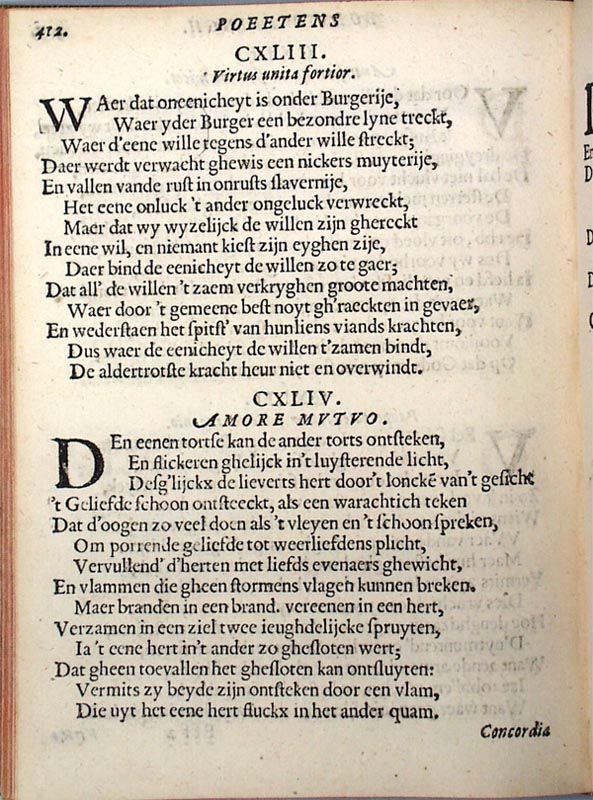 412. POEETENS
CXLIII.
Virtus unita fortior.
WAer dat oneenicheyt is onder Burgerije,
Waer yder Burger een bezondre lyne treckt,
Waer d'eene wille tegens d'ander wille streckt;
Daer werdt verwacht ghewis een nickers muyterije,
En vallen vande rust in onrusts slavernije,
Het eene onluck 't ander ongeluck verwreckt,
Maer dat wy wyzelijck de willen zijn ghereckt
In eene wil, en niemant kiest zijn eyghen zije,
Daer bind de eenicheyt de willen zo te gaer;
Dat all' de willen 't zaem verkryghen groote machten,
Waer door 't gemeene best noyt gh'raeckten in gevaer,
En wederstaen het spitst' van hunliens viands krachten,
Dus waer de eenicheyt de willen t'zamen bindt,
De aldertrotste kracht heur niet en overwindt.
CXLIV.
AMORE MVTVO.
DEn eenen tortse kan de ander torts ontsteken,
En flickeren ghelijck in't luysterende licht,
Desg'lijckx de lieverts hert door't lonckē van't gesicht
't Geliefde schoon ontsteeckt, als een warachtich teken
Dat d'oogen zo veel doen als 't vleyen en 't schoon spreken,
Om porrende geliefde tot weerliefdens plicht,
Vervullend' d'herten met liefds evenaers ghewicht,
En vlammen die gheen stormens vlagen kunnen breken.
Maer branden in een brand. vereenen in een hert,
Verzamen in een ziel twee ieughdelijcke spruyten,
Ia 't eene hert in't ander zo ghesloten wert;
Dat gheen toevallen het ghesloten kan ontsluyten:
Vermits zy beyde zijn ontsteken door een vlam,
Die uyt het eene hert fluckx in het ander quam.
Concordia